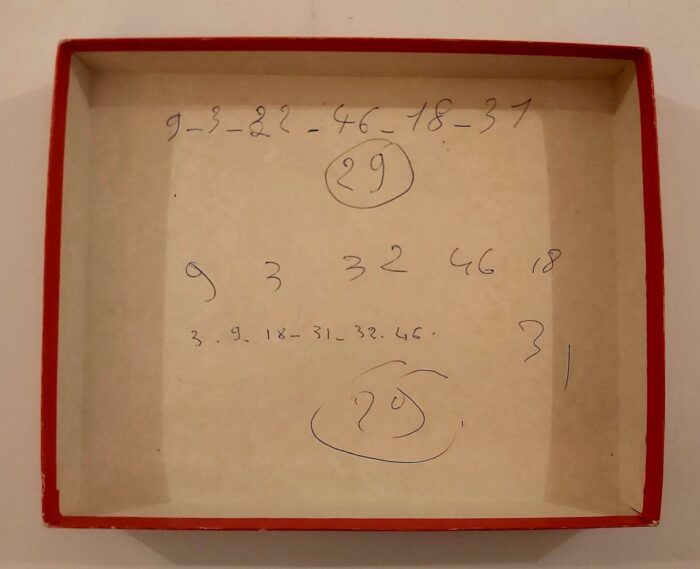 9-3-32-46-18-31
29
9 3 32 46 18
31
3.9.18-31-32.46.
29